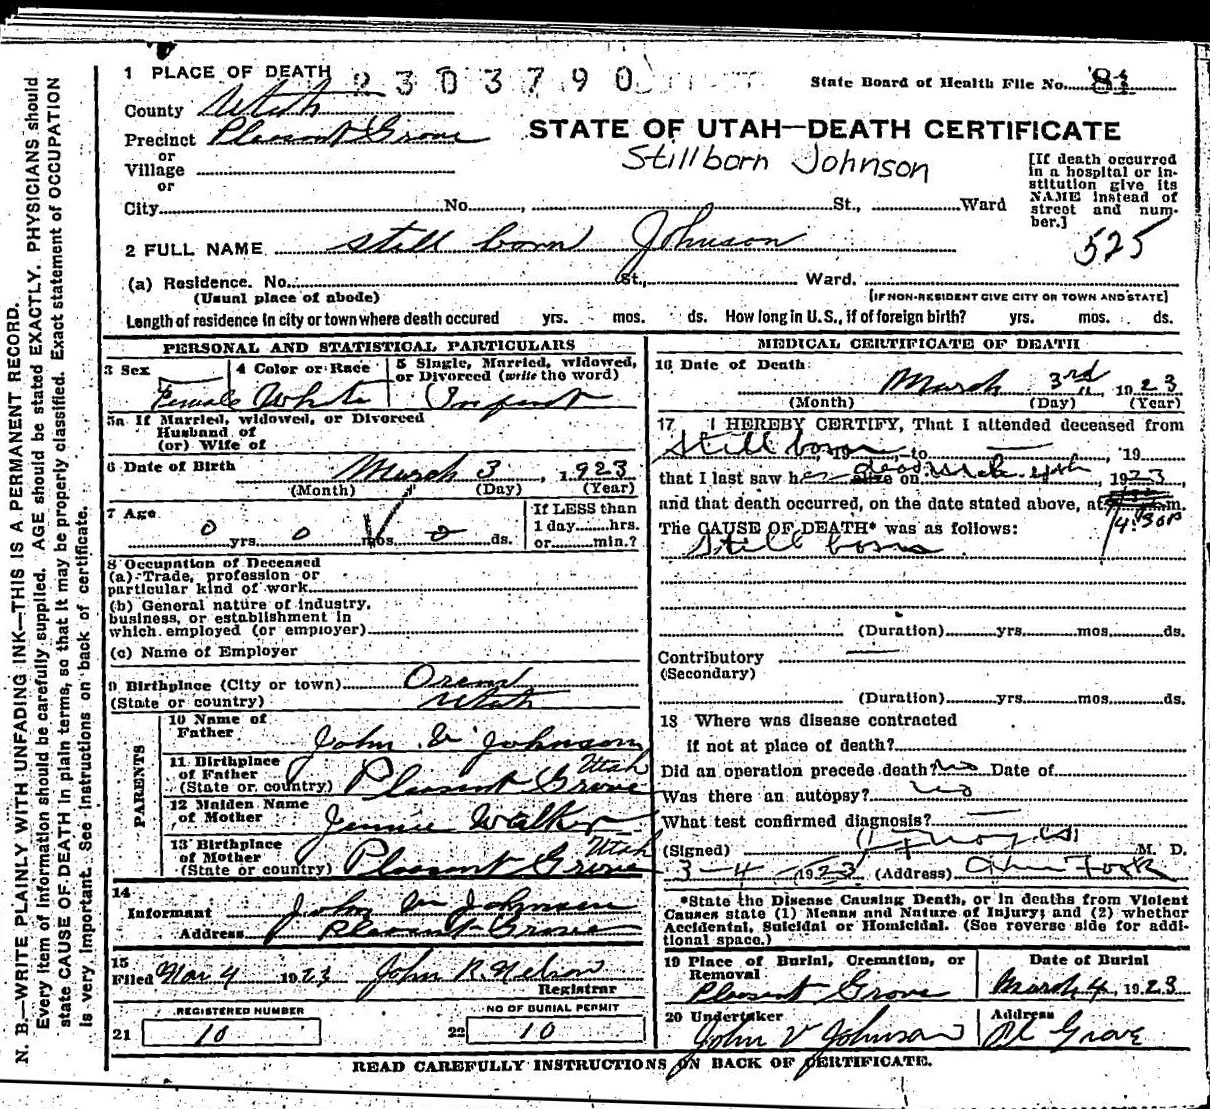 1 PLACE OF DEATH 2303790 State Board of Health File No. 81
County Utah
Precinct Pleasant Grove
STATE OF UTAH—DEATH CERTIFICATE
or
Village
Stillborn Johnson
or
City No. St., Ward
[If death occurred in a hospital or institution give its NAME instead of street and number.]
525
2 FULL NAME still born Johnson
(a) Residence. No. St., Ward.
(Usual place of abode) [IF NON-RESIDENT GIVE CITY OR TOWN AND STATE]
Length of residence in city or town where death occured yrs. mos. ds. How long in U.S., if of foreign birth? yrs. mos. ds.
PERSONAL AND STATISTICAL PARTICULARS
3 Sex 4 Color or Race 5 Single, Married, widowed,
or Divorced (write the word)
Female White Infant
5a If Married, widowed, or Divorced
Husband of
(or) Wife of
6 Date of Birth March 3, 1923
(Month) (Day) (Year)
7 Age If LESS than
0 yrs. 0 mos. 0 ds. 1 day hrs.
or min.?
8 Occupation of Deceased
(a) Trade, profession or
particular kind of work
(b) General nature of industry,
business, or establishment in
which employed (or employer)
(c) Name of Employer
9 Birthplace (City or town) Orem
(State or country) Utah
PARENTS
10 Name of
Father John V Johnson
11 Birthplace
of Father Utah
(State or country) Pleasant Grove
12 Maiden Name
of Mother Jennie Walker
13 Birthplace
of Mother Utah
(State or country) Pleasant Grove
14
Informant John V Johnson
Address Pleasant Grove
15
Filed Mar 4 1923 John R. Nelson
Registrar
REGISTERED NUMBER NO OF BURIAL PERMIT
21 10 22 10
MEDICAL CERTIFICATE OF DEATH
16 Date of Death
March 3rd 1923
(Month) (Day) (Year)
17 I HEREBY CERTIFY, That I attended deceased from
Still born, to 19
that I last saw her dead alive on March 4th, 1923
and that death occurred, on the date stated above, at m.
4:30 P
The CAUSE OF DEATH* was as follows:
Still born
(Duration) yrs. mos. ds.
Contributory
(Secondary)
(Duration) yrs. mos. ds.
18 Where was disease contracted
if not at place of death?
Did an operation precede death? no Date of
Was there an autopsy? no
What test confirmed diagnosis?
(Signed) M. D.
3-4 1923 (Address) Am Fork
*State the Disease Causing Death, or in deaths from Violent
Causes state (1) Means and Nature of Injury; and (2) whether
Accidental, Suicidal or Homicidal. (See reverse side for addi-
tional space.)
19 Place of Burial, Cremation, or Date of Burial
Removal
Pleasant Grove March 4, 1923
20 Undertaker Address
John V Johnson Pl Grove
READ CAREFULLY INSTRUCTIONS ON BACK OF CERTIFICATE.
N. B.—WRITE PLAINLY WITH UNFADING INK—THIS IS A PERMANENT RECORD.
Every item of information should be carefully supplied. AGE should be stated EXACTLY. PHYSICIANS should
state CAUSE OF DEATH in plain terms, so that it may be properly classified. Exact statement of OCCUPATION
is very important. See instructions on back of certificate.